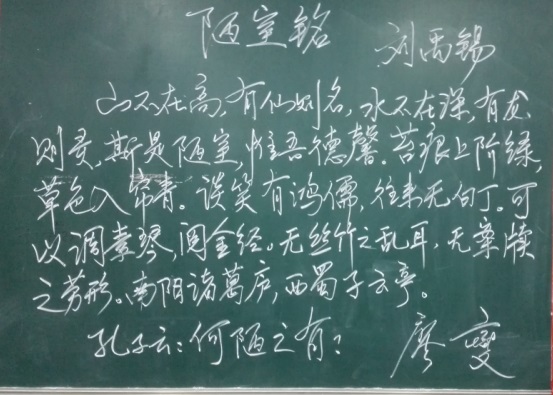 陋室铭 刘禹锡
山不在高,有仙则名,水不在深,有龙
则灵,斯是陋室,惟吾德馨。苔痕上阶绿,
草色入帘青。谈笑有鸿儒,往来无白丁。可
以调素琴,阅金经。无丝竹之乱耳,无案牍
之劳形。南阳诸葛庐,西蜀子云亭。
孔子云:何陋之有? 廖变